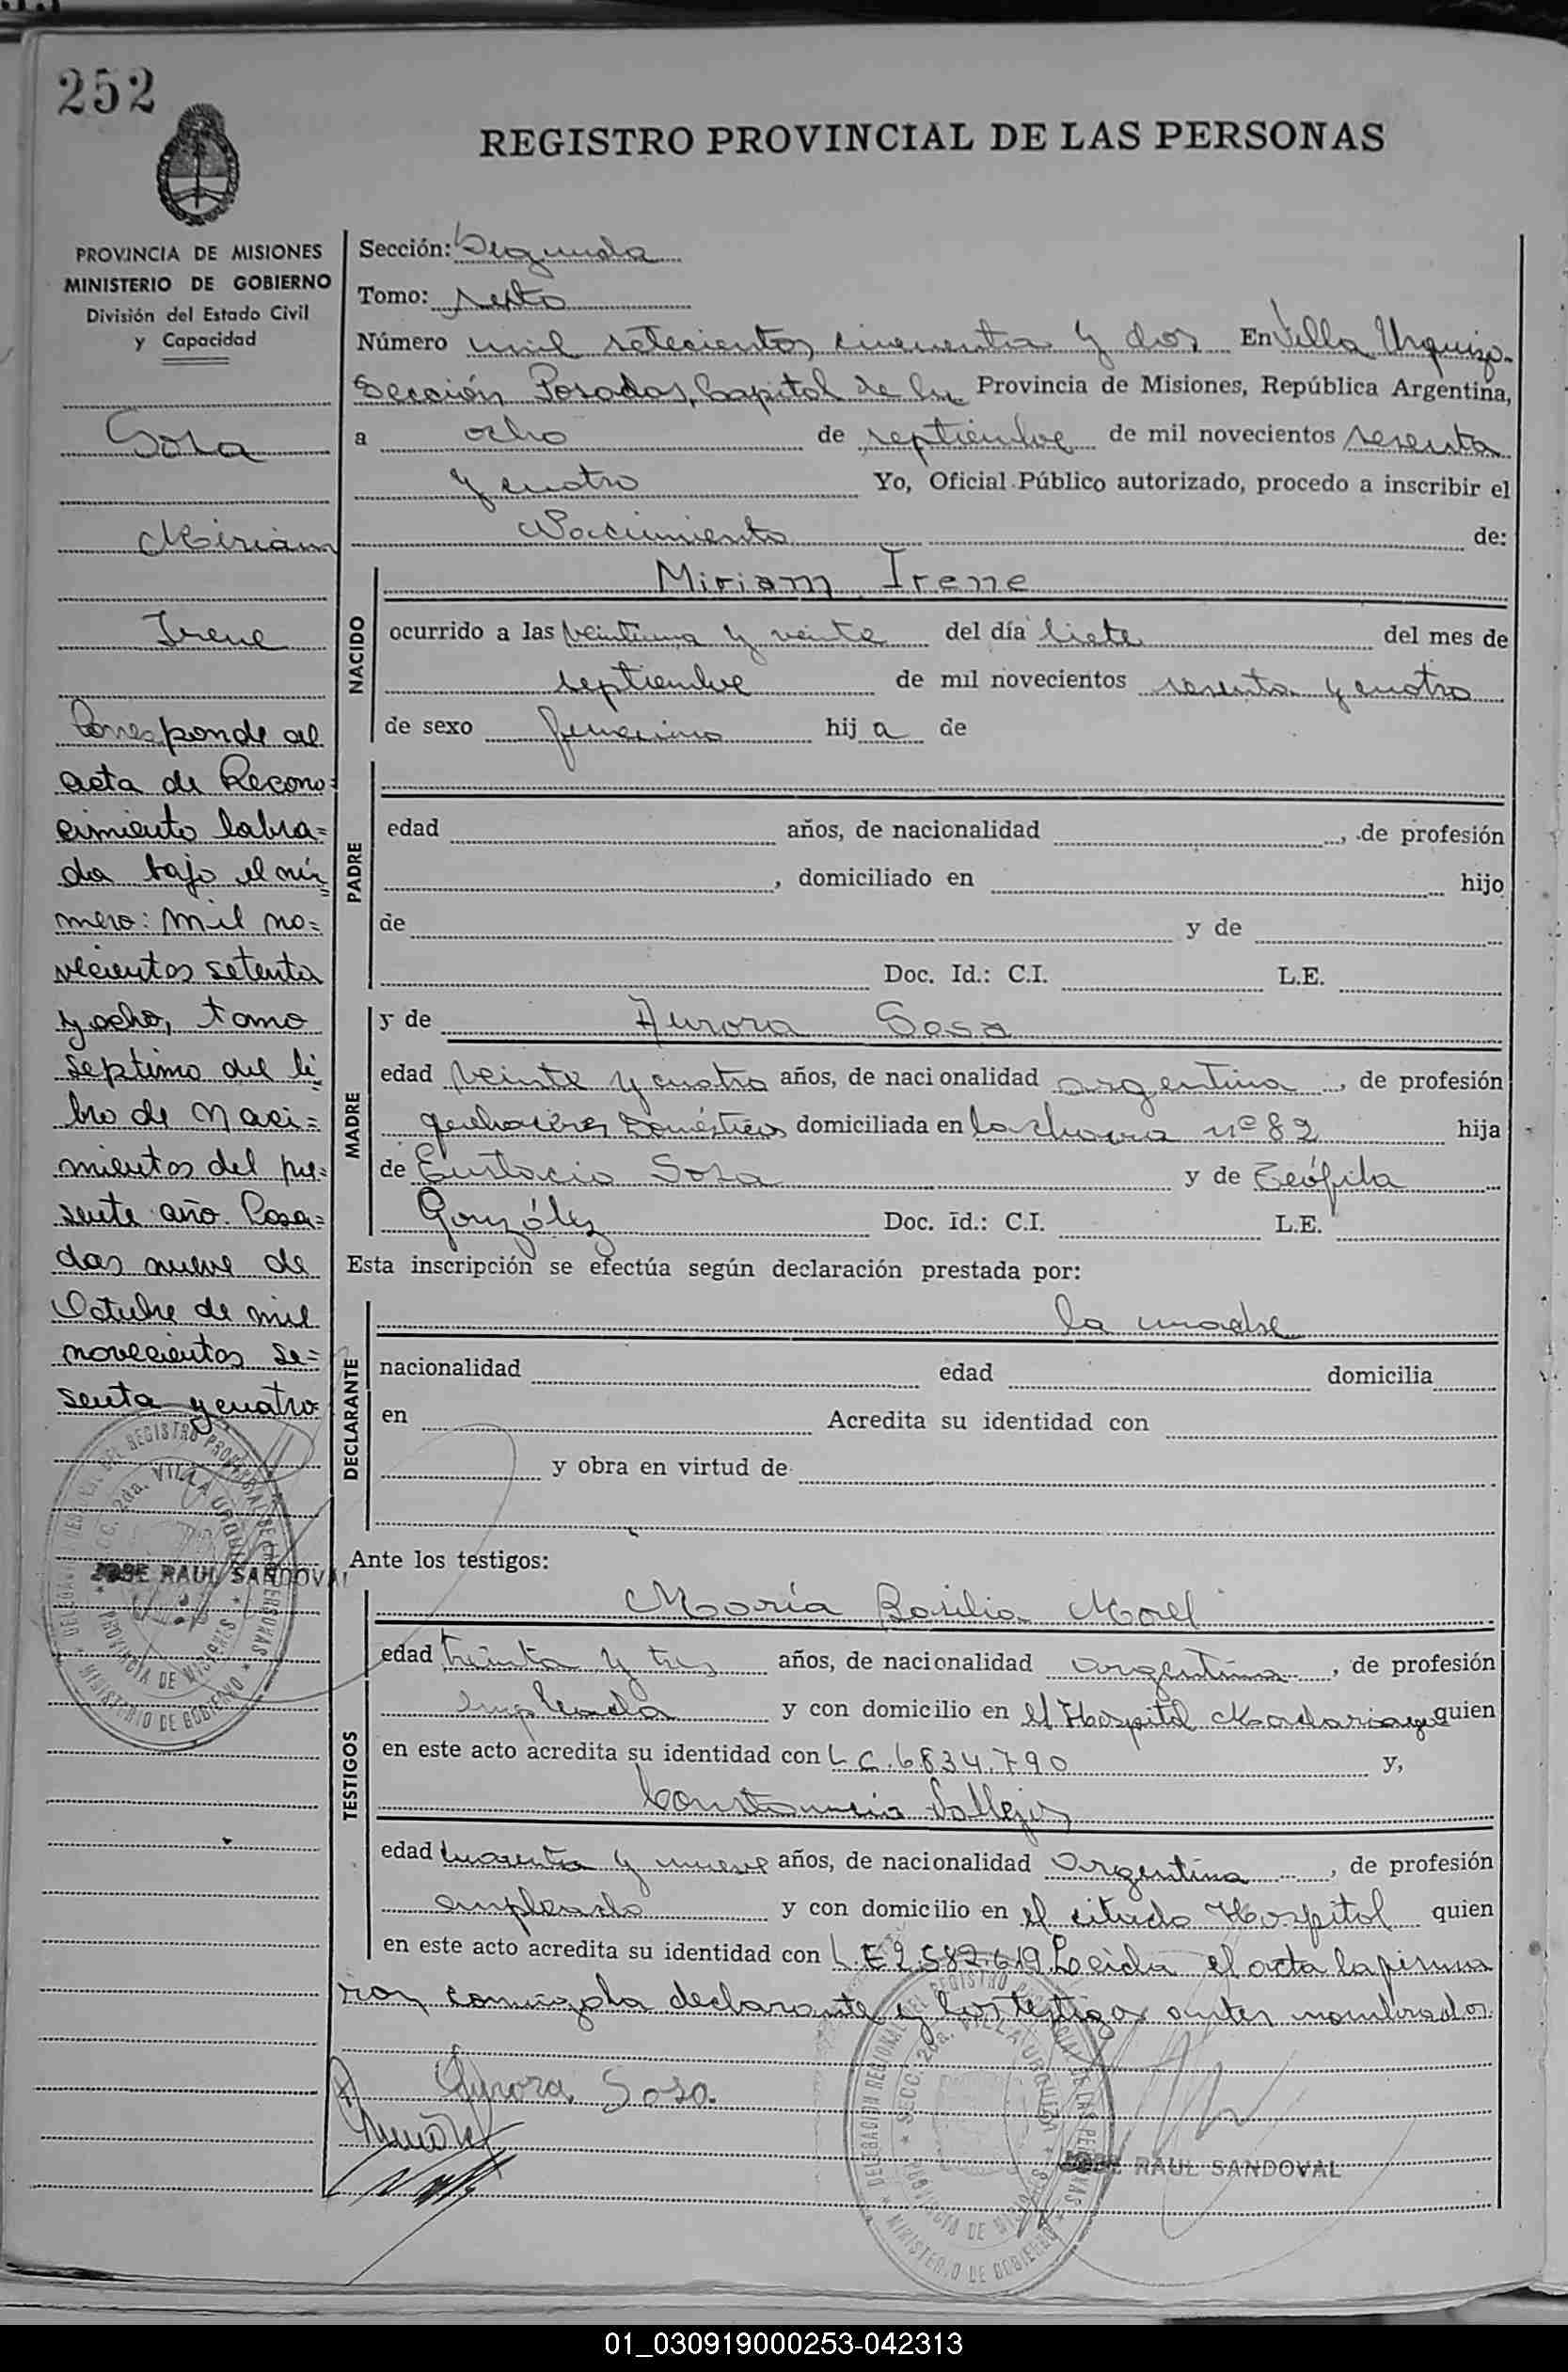 252
REGISTRO PROVINCIAL DE LAS PERSONAS
PROVINCIA DE MISIONES
MINISTERIO DE GOBIERNO
División del Estado Civil
y Capacidad
Sosa
Miriam
Irene
Corresponde al
acta de Recono=
cimiento labra=
da bajo el nú=
mero: mil no=
vecientos setenta
y ocho, tomo
septimo del li=
bro de naci=
mientos del pre=
sente año. Posa=
das nueve de
Octubre de mil
novecientos se=
senta y cuatro
DELEGACION REGIONAL DEL REGISTRO PROVINCIAL DE LAS PERSONAS
SECC. 2da. VILLA URQUIZA
PROVINCIA DE MISIONES
MINISTERIO DE GOBIERNO
JOSE RAUL SANDOVAL
Sección: Segunda
Tomo: sexto
Número mil setecientos cincuenta y dos En Villa Urquiza.
Sección Posadas, Capital de la Provincia de Misiones, República Argentina,
a ocho de septiembre de mil novecientos sesenta
y cuatro Yo, Oficial Público autorizado, procedo a inscribir el
Nacimiento de:
NACIDO
Miriam Irene
ocurrido a las veintiuna y veinte del día siete del mes de
septiembre de mil novecientos sesenta y cuatro
de sexo femenino hij a de
PADRE
edad años, de nacionalidad , de profesión
, domiciliado en hijo
de y de
Doc. Id.: C.I. L.E.
MADRE
y de Aurora Sosa
edad veinte y cuatro años, de nacionalidad argentina, de profesión
quehaceres domésticos domiciliada en la chacra nº 82 hija
de Eustacio Sosa y de Teófila
González Doc. Id.: C.I. L.E.
Esta inscripción se efectúa según declaración prestada por:
DECLARANTE
la madre
nacionalidad edad domicilia
en Acredita su identidad con
y obra en virtud de
Ante los testigos:
TESTIGOS
María Basilia Morel
edad treinta y tres años, de nacionalidad argentina, de profesión
empleada y con domicilio en el Hospital Madariaga quien
en este acto acredita su identidad con L C. 6.834.790 y,
Constancio Vallejos
edad cuarenta y nueve años, de nacionalidad argentina, de profesión
empleado y con domicilio en el citado Hospital quien
en este acto acredita su identidad con L. E 2.582.619. Leida el acta la firma
ron conmigo la declarante y los testigos antes nombrados.
Aurora Sosa.
DELEGACION REGIONAL DEL REGISTRO PROVINCIAL DE LAS PERSONAS
SECC. 2da. VILLA URQUIZA
PROVINCIA DE MISIONES
MINISTERIO DE GOBIERNO
JOSE RAUL SANDOVAL
01_030919000253-042313